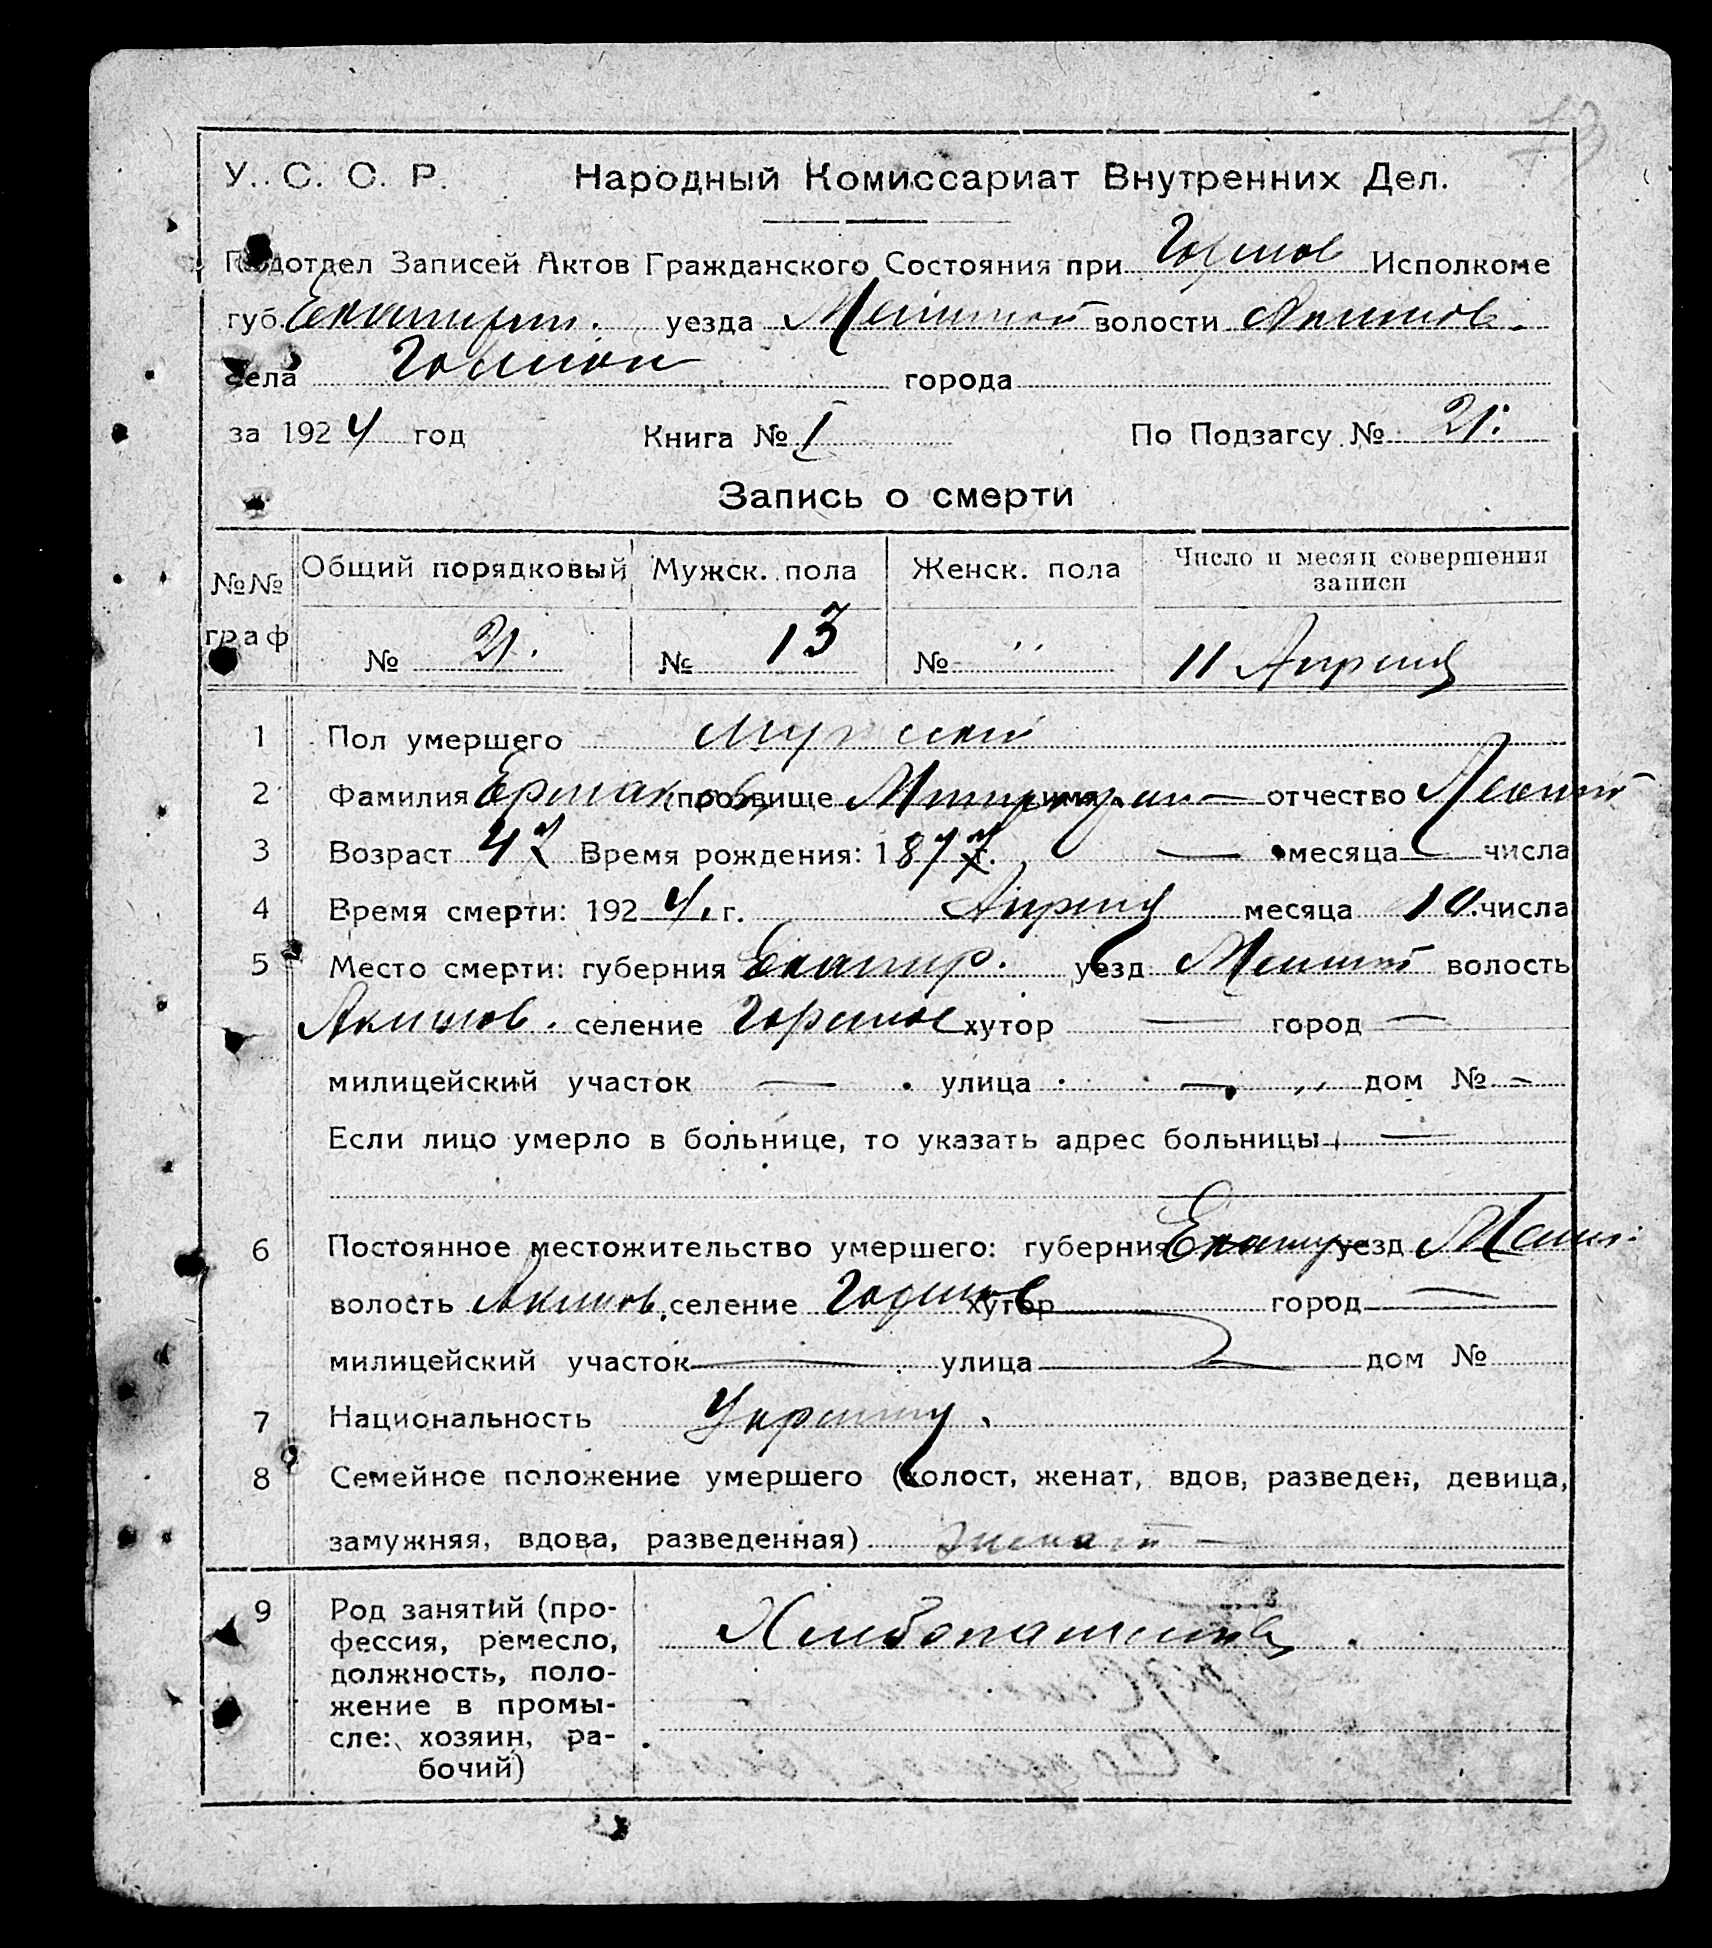 У. С. С. Р. Народный Комиссариат Внутренних Дел.
Подотдел Записей Актов Гражданского Состояния при Исполкоме
губ. уезда волости Акимов.
села города
за 1924 год Книга № I По Подзагсу № 21.
Запись о смерти
№№ граф Общий порядковый Мужск. пола Женск. пола Число и месяц совершения записи
№ 21. № 13 № " 11 Апреля
1 Пол умершего мужской
2 Фамилия Ермаков (прозвище имя — отчество
3 Возраст 47 Время рождения: 1877 г. — месяца числа
4 Время смерти: 1924. г. Апреля месяца 10. числа
5 Место смерти: губерния Екатер. уезд волость
Акимов. селение хутор — город —
милицейский участок — улица — " дом № -
Если лицо умерло в больнице, то указать адрес больницы —
6 Постоянное местожительство умершего: губерния уезд
волость Акимов. селение хутор город —
милицейский участок — улица дом №
7 Национальность
8 Семейное положение умершего (холост, женат, вдов, разведен, девица,
замужняя, вдова, разведенная) женат —
9 Род занятий (про-
фессия, ремесло,
должность, поло-
жение в промы-
сле: хозяин, ра-
бочий)